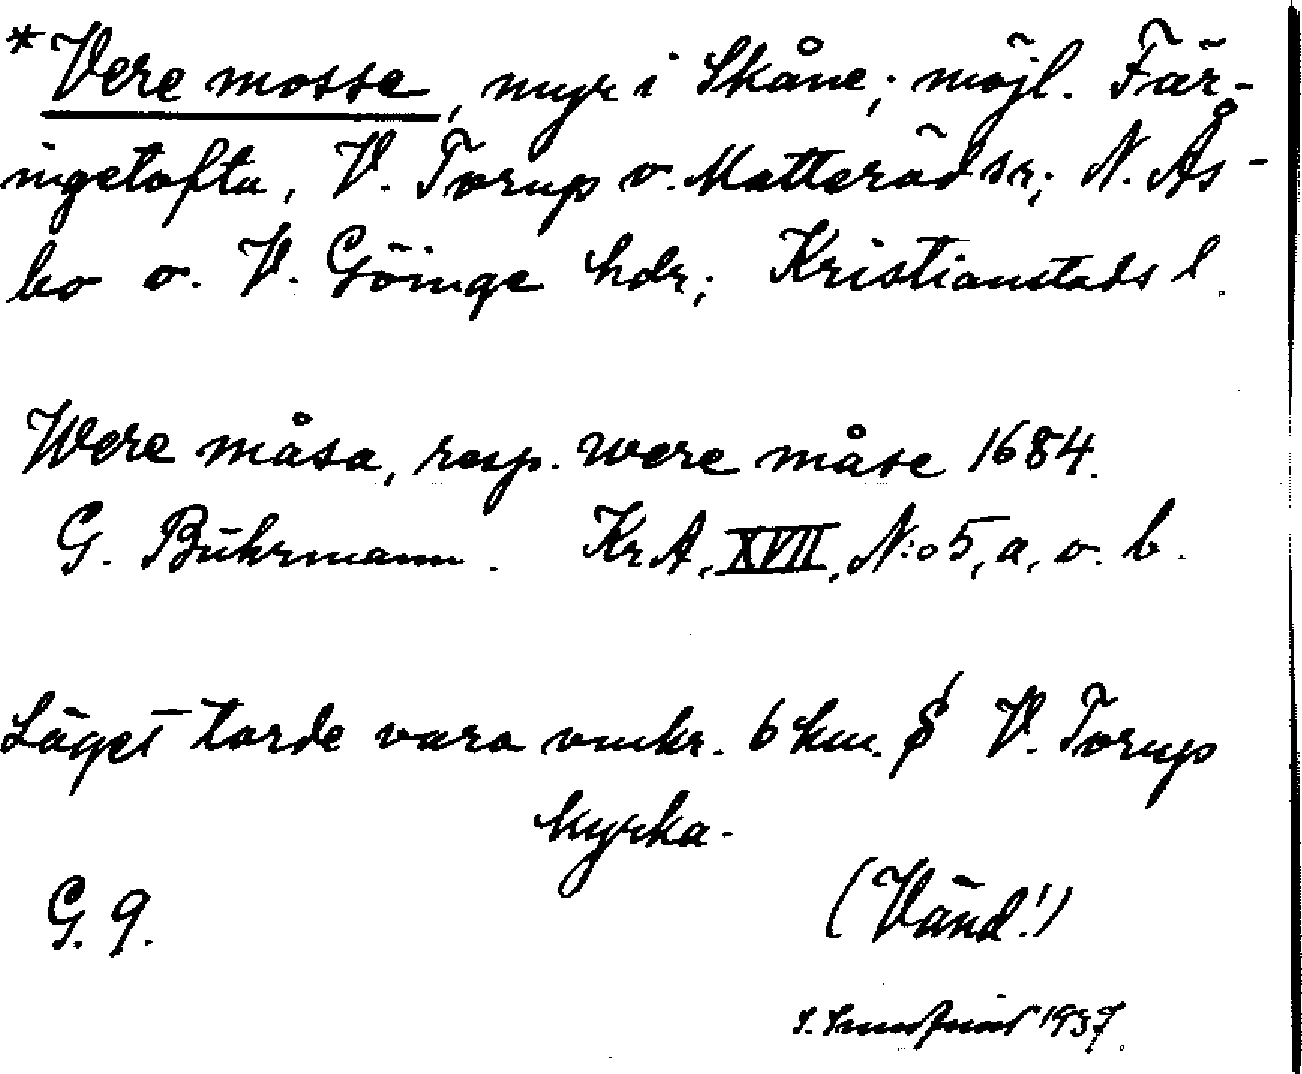 *Vere mosse, myr i Skåne; möjl. Fär-
ingetofta, V. Torup o. Matteröd snr; N. Ås-
bo o. V. Göinge hdr; Kristianstads l.
Were måsa, resp. were måse 1684.
G. Buhrmann. KrA, XVII, N:o 5, a, o. b.
Läget torde vara omkr. 6 km. S V. Torup
kyrka.
G. 9.
(Vänd!)
1937